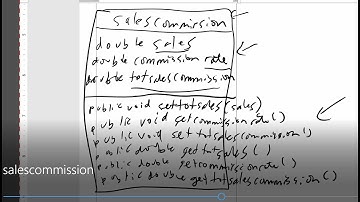 salescommission
double sales
double commission rate
double totsalescommission
public void settotsales(sales)
public void setcommissionrate()
public void settotsalescommission()
public double gettotsales()
public double getcommissionrate()
public double gettotsalescommission()
salescommission